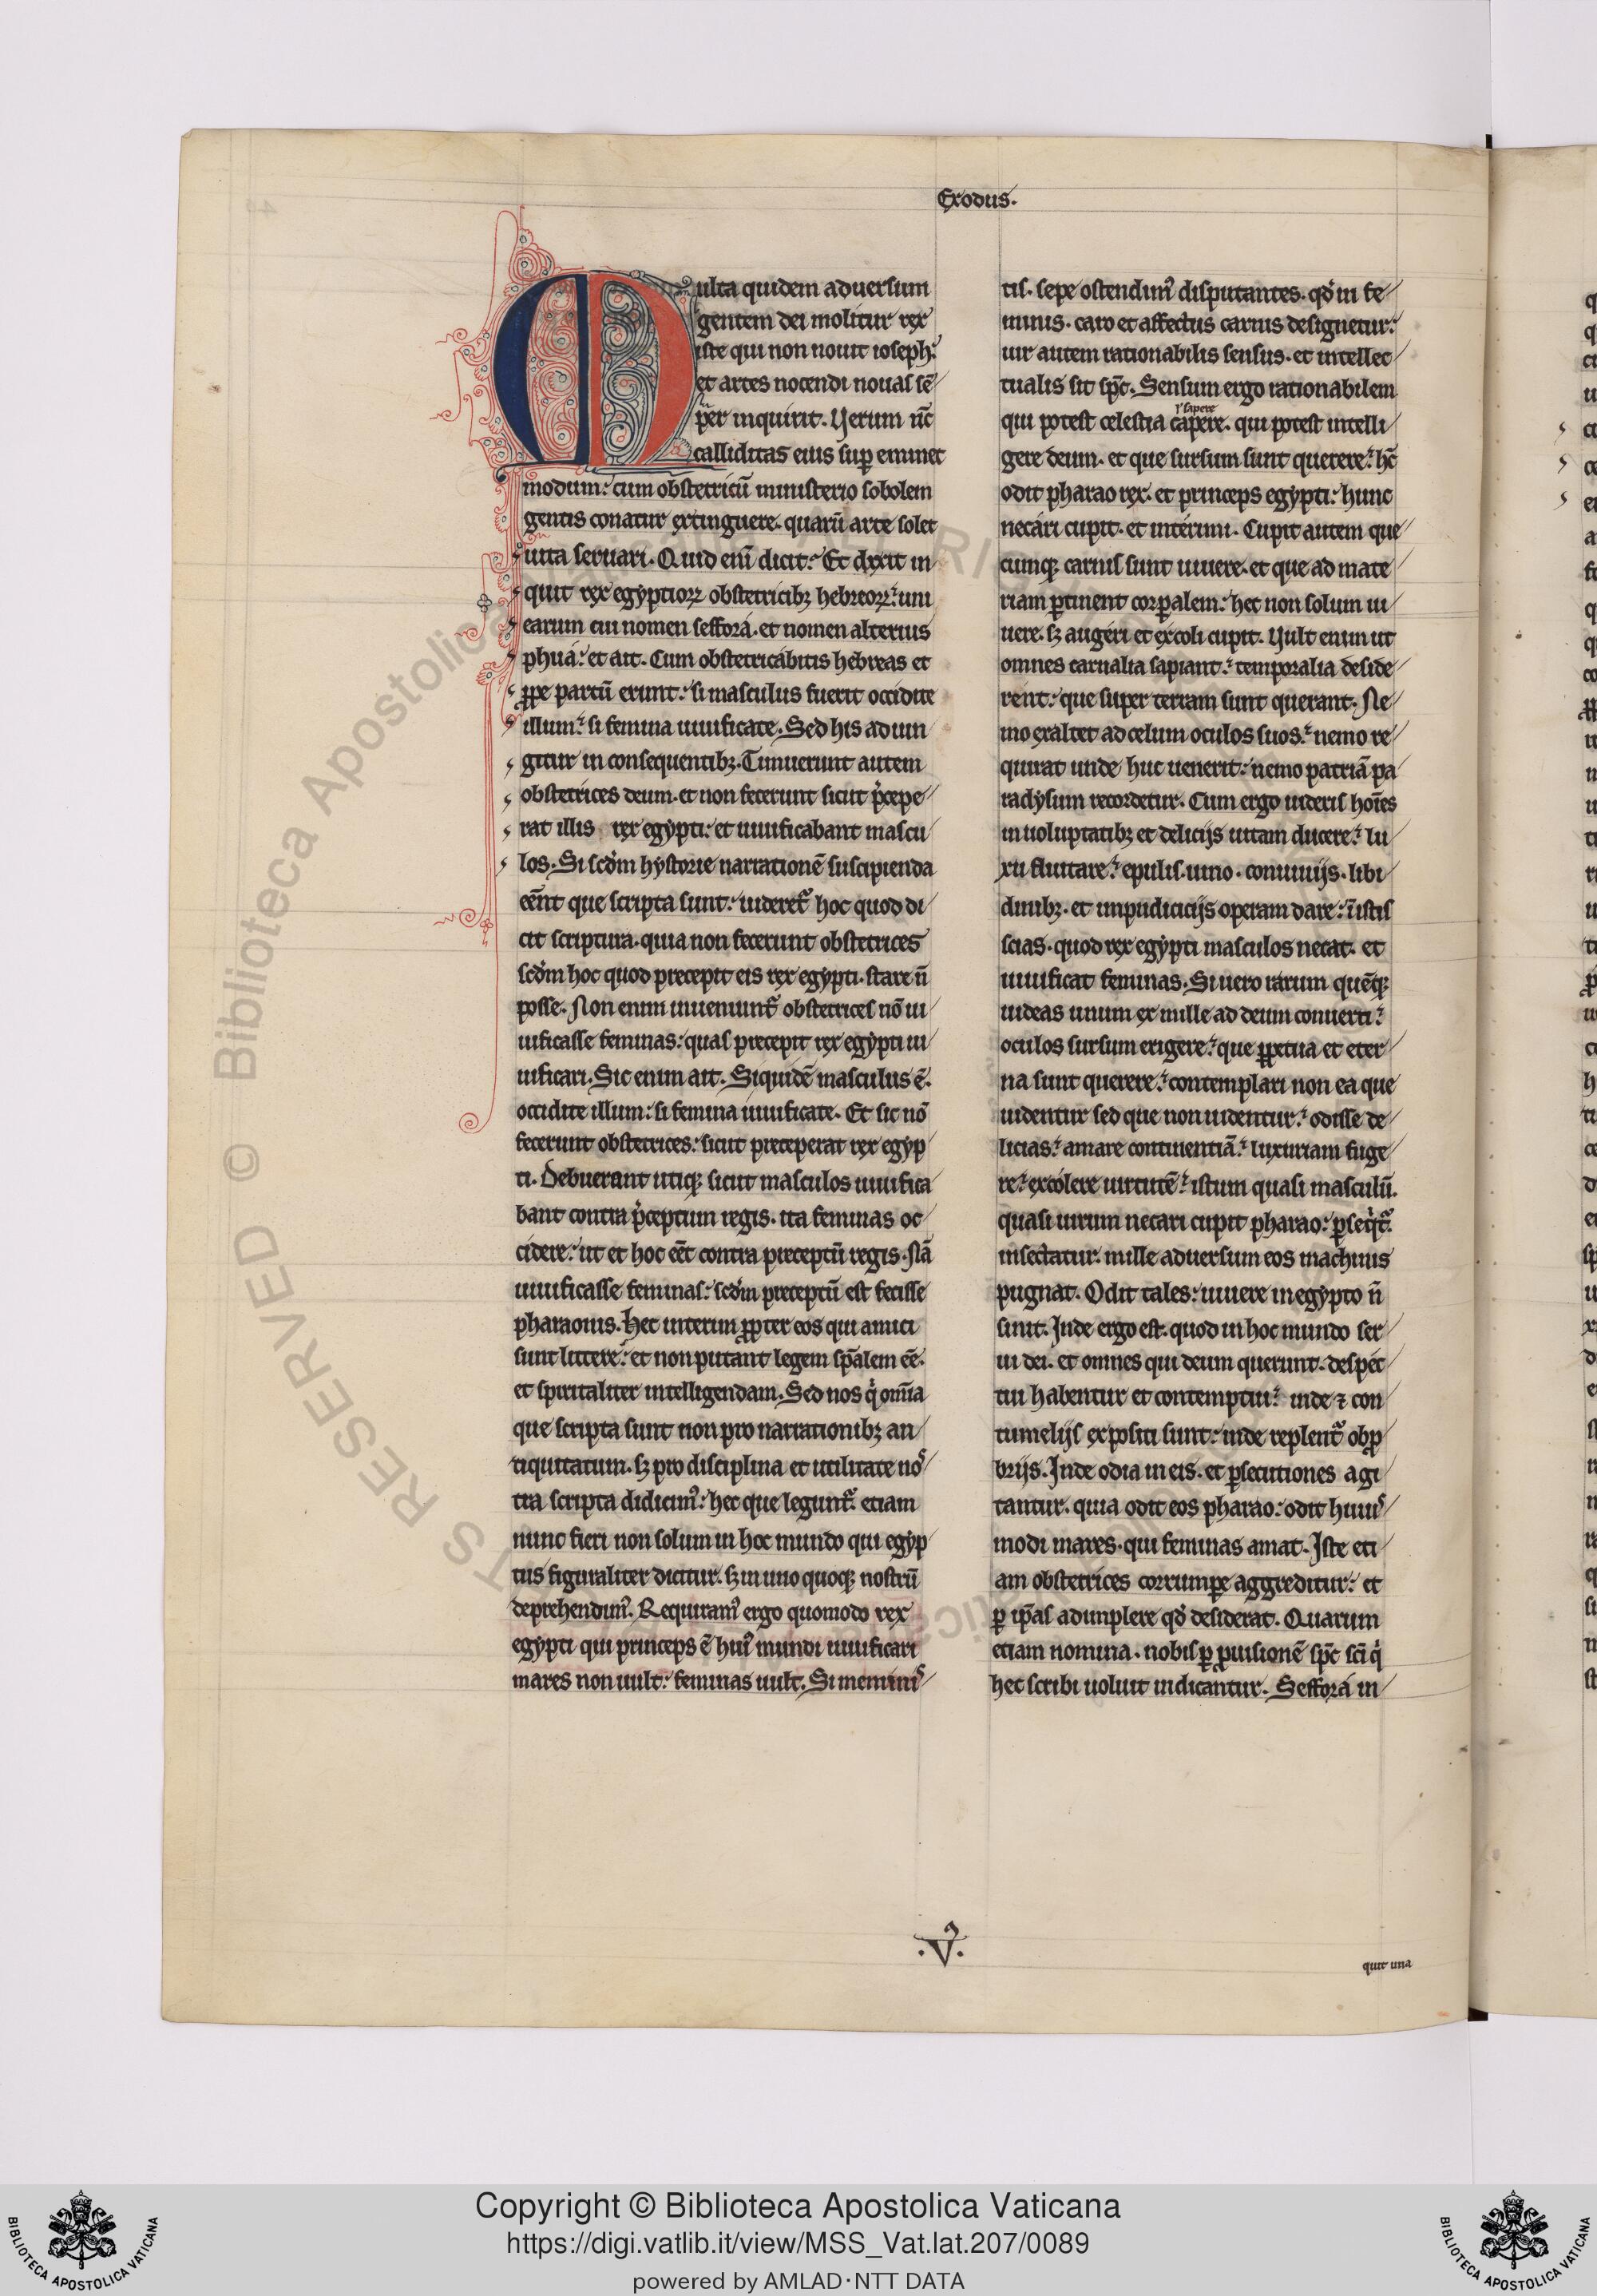 Exodus.
Multa quidem aduersum
gentem dei molitur rex
iste qui non nouit ioseph:
et artes nocendi nouas sē
per inquirit. Verum nūc
calliditas eius sup eminet
modum: cum obstetricū ministerio sobolem
gentis conatur extinguere. quarū arte solet
uita seruari. Quid eni᷒ dicit: Et dixit in
quit rex egyptioꝝ obstetricibꝫ hebreoꝝ: uni
earum cui nomen seffora. et nomen alterius
phua: et ait. Cum obstetricabitis hebreas et
ꝓpe partū erunt: si masculus fuerit occidite
illum: si femina uiuificate. Sed his adiun
gitur in consequentibꝫ. Timuerunt autem
obstetrices deum. et non fecerunt sicut p̄cepe
rat illis rex egypti: et uiuificabant mascu
los. Si scd̄m hystorie narrationē suscipienda
eēnt que scripta sunt: uideret᷑ hoc quod di
cit scriptura. quia non fecerunt obstetrices
scd̄m hoc quod precepit eis rex egypti. stare n̄
posse. Non enim inueniunt᷑ obstetrices nō ui
uificasse feminas: quas precepit rex egypti ui
uificari. Sic enim ait. Siquidē masculus ē.
occidite illum: si femina uiuificate. Et sic nō
fecerunt obstetrices: sicut preceperat rex egyp
ti. Debuerant utiqꝫ sicut masculos uiuifica
bant contra p̄ceptum regis. ita feminas oc
cidere: ut et hoc eēt contra preceptū regis. Nā
uiuificasse feminas: scd̄m preceptū est fecisse
pharaonis. Hec interim ꝓpter eos qui amici
sunt littere: et non putant legem sp̄alem eē.
et spiritaliter intelligendam. Sed nos q̇ om̄ia
que scripta sunt non pro narrationibꝫ an
tiquitatum. sꝫ pro disciplina et utilitate nos
tra scripta didicim᷒: hec que legunt᷑. etiam
nunc fieri non solum in hoc mundo qui egyp
tus figuraliter dicitur. sꝫ in uno quoqꝫ nostrū
deprehendim᷒. Requiram᷒ ergo quomodo rex
egypti qui princeps ē hui᷒ mundi uiuificari
mares non uult: feminas uult. Si memini s
tis. sepe ostendim᷒ disputantes. qd̄ in fe
minis. caro et affectus carnis designetur:
uir autem rationabilis sensus. et intellec
tualis sit sp̄c. Sensum ergo rationabilem
ł sapere
qui potest celestia capere. qui potest intelli
gere deum. et que sursum sunt querere: hc̄
odit pharao rex. et princeps egypti: hunc
necari cupit. et interimi. Cupit autem que
cumqꝫ carnis sunt uiuere. et que ad mate
riam ꝑtinent corꝑalem: hec non solum ui
uere. sꝫ augeri et excoli cupit. Vult enim ut
omnes carnalia sapiant: temporalia deside
rent: que super terram sunt querant. Ne
mo exaltet ad celum oculos suos: nemo re
quirat unde huc uenerit: nemo patriā pa
radysum recordetur. Cum ergo uideris hoīes
in uoluptatibꝫ et delicijs uitam ducere: lu
xu fluitare: epulis. uino. conuiuijs. libi
dinibꝫ. et impudicicijs operam dare: ī istis
scias. quod rex egypti masculos necat. et
uiuificat feminas. Si uero rarum quēqꝫ
uideas unum ex mille ad deum conuerti:
oculos sursum erigere: que ꝑpetua et eter
na sunt querere: contemplari non ea que
uidentur sed que non uidentur: odisse de
licias: amare continentiā: luxuriam fuge
re: excolere uirtutē: istum quasi masculū.
quasi uirum necari cupit pharao: ꝑseqit᷑.
insectatur. mille aduersum eos machinis
pugnat. Odit tales: uiuere in egypto n̄
sinit. Inde ergo est. quod in hoc mundo ser
ui dei. et omnes qui deum querunt. despec
tui habentur et contemptui: inde ⁊ con
tumelijs expositi sunt: inde replent᷑ obp
brijs. Inde odia in eis. et ꝑsecutiones agi
tantur. quia odit eos pharao: odit huiꝰ
modi mares. qui feminas amat. Iste eti
am obstetrices corrumꝑe aggreditur: et
ꝑ ip̄as adimplere qd̄ desiderat. Quarum
etiam nomina. nobis ꝑ ꝓuisionē sp̄c sc̄i q̇
hec scribi uoluit indicantur. Seffora in
.V᷒.
quit una
Copyright © Biblioteca Apostolica Vaticana
https://digi.vatlib.it/view/MSS_Vat.lat.207/0089
powered by AMLAD·NTT DATA